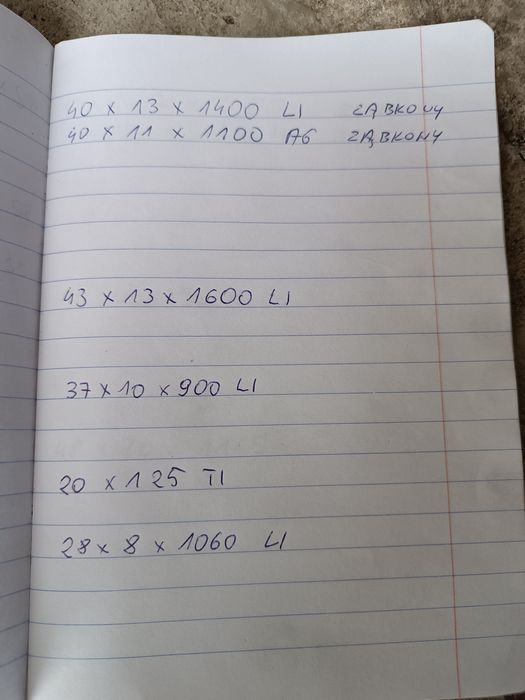 40 x 13 x 1400 LI ZĄBKOWY
40 x 11 x 1100 A6 ZĄBKOWY
43 x 13 x 1600 LI
37 x 10 x 900 LI
20 x 125 TI
28 x 8 x 1060 LI